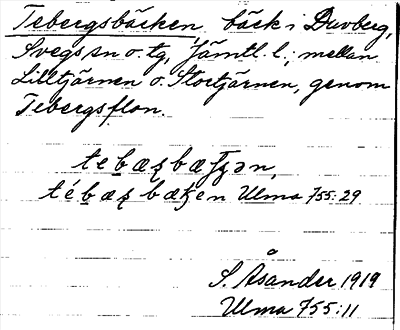 Tebergsbäcken bäck i Duvberg,
Svegs sn o. tg, Jämtl. l.; mellan
Lilltjärnen o. Stortjärnen, genom
Tebergsflon.
Ulma 755:29
S. Åsander 1919
Ulma 755:11